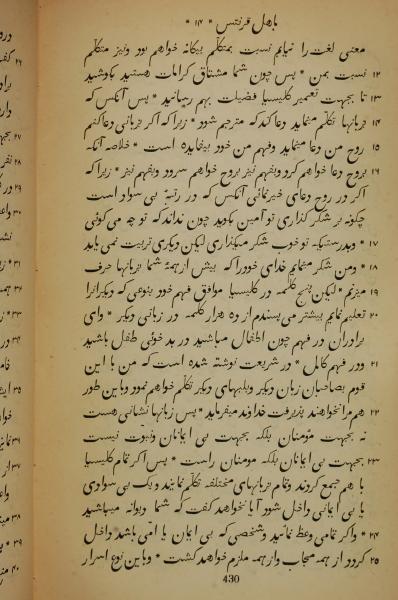 باهل قرنتس * ۱۴ *
معنی لغت را نیابم نسبت بمتکلم بیکانه خواهم بود ونیز متکلم
۱۲ نسبت بمن * پس چون شما مشتاق کرامات هستید بکوشید
۱۳ تا بجهت تعمیر کلیسیا فضیلت بهم رسانید * پس آنکس که
۱۴ بزبانها تکلم مینماید دعا کند که مترجم شود * زیرا که اکر بزبانی دعا کنم
۱۵ روح من دعا مینماید وفهم من خود بیفایده است * خلاصه آنکه
۱۶ بروح دعا خواهم کرد وبفهم نیز بروح خواهم سرود وبفهم نیز * زیرا که
اکر در روح دعای خیر نمائی آنکس که در رتبهٔ بی سواد است
چکونه بر شکر کذاری تو آمین بکوید چون نداند که تو چه می کوئی
۱۷ * وبدرستیکه تو خوب شکر میکذاری لیکن دیکری تربیت نمی یابد
۱۸ * ومن شکر مینمایم خدای خود را که بیش از همهٔ شما بزبانها حرف
۱۹ میزنم * لیکن پنج کلمه در کلیسیا موافق فهم خود بنوعی که دیکرانرا
۲۰ تعلیم نمایم بیشتر می پسندم از ده هزار کلمه در زبانی دیکر * وای
برادران در فهم چون اطفال مباشید در بد خوئی طفل باشید
۲۱ ودر فهم کامل * در شریعت نوشته شده است که من با این
قوم بصاحبان زبان دیکر وبلبهای دیکر تکلم خواهم نمود وباین طور
۲۲ هم مرا نخواهند پذیرفت خداوند میفرماید * پس زبانها نشانی هست
نه بجهت مؤمنان بلکه بجهت بی ایمانان ونبوت نیست
۲۳ بجهت بی ایمانان بلکه مومنان راست * پس اکر تمام کلیسیا
با هم جمع کردند وتمام بزبانهای مختلفه تکلم نمایند ویک بی سوادی
یا بی ایمانی داخل شود آیا نخواهد کفت که شما دیوانه میباشید
۲۴ * واکر تمامی وعظ نمائید وشخصی که بی ایمان یا امی باشد داخل
۲۵ کردد از همه مجاب واز همه ملزم خواهد کشت * وباین نوع اسرار
430